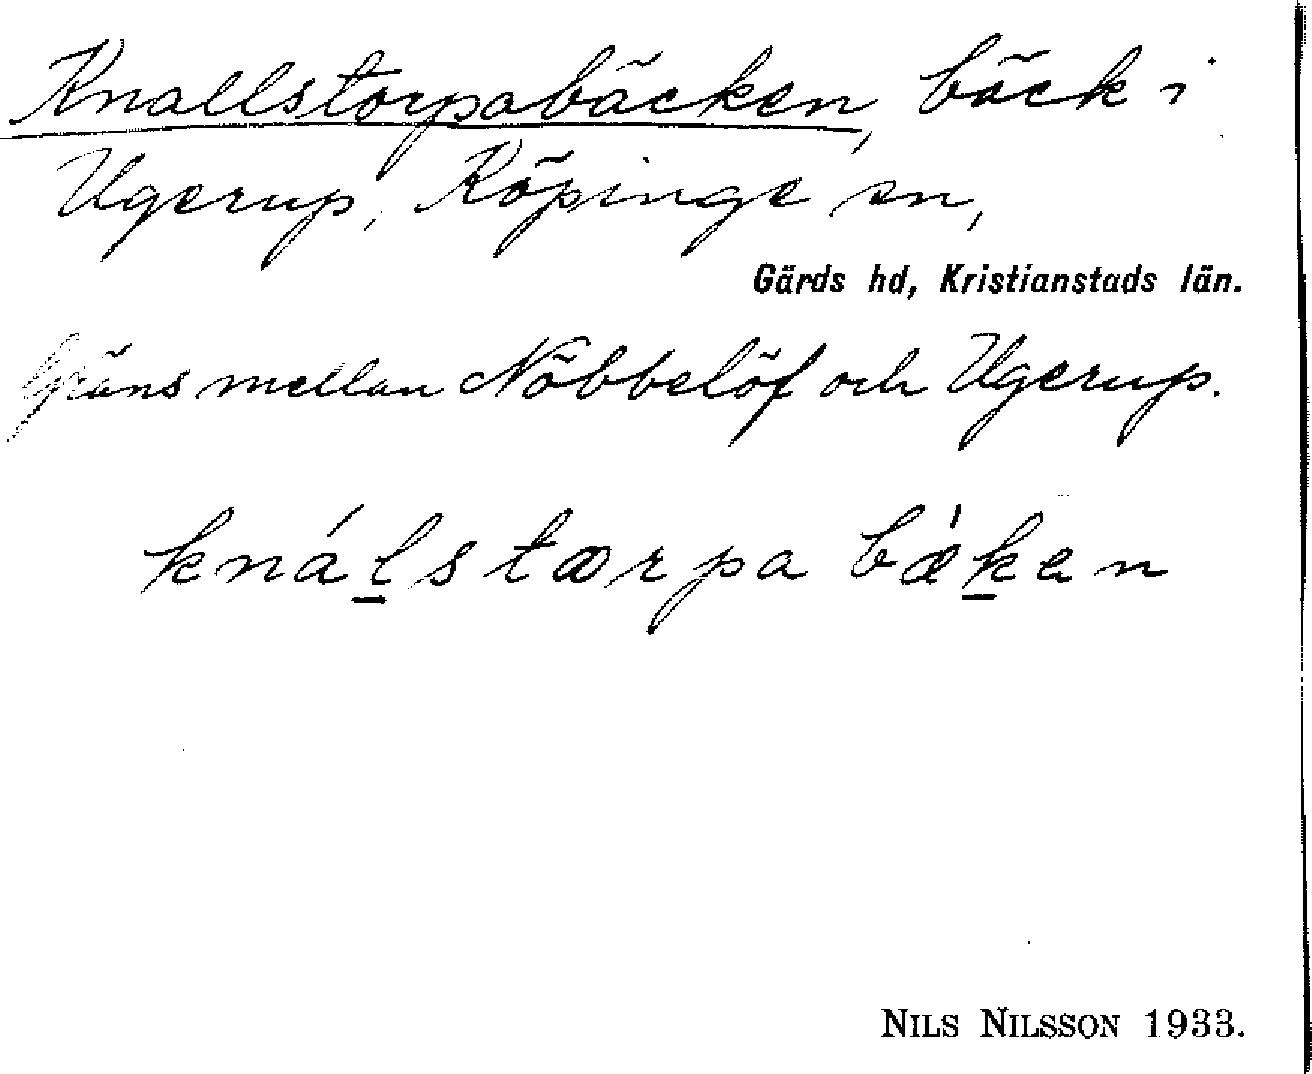 Knallstorpabäcken, bäck i
Ugerup, Köpinge sn,
Gärds hd, Kristianstads län.
Gräns mellan Nöbbelöf och Ugerup.
knálstɶrpa bæ̀kan
NILS NILSSON 1933.